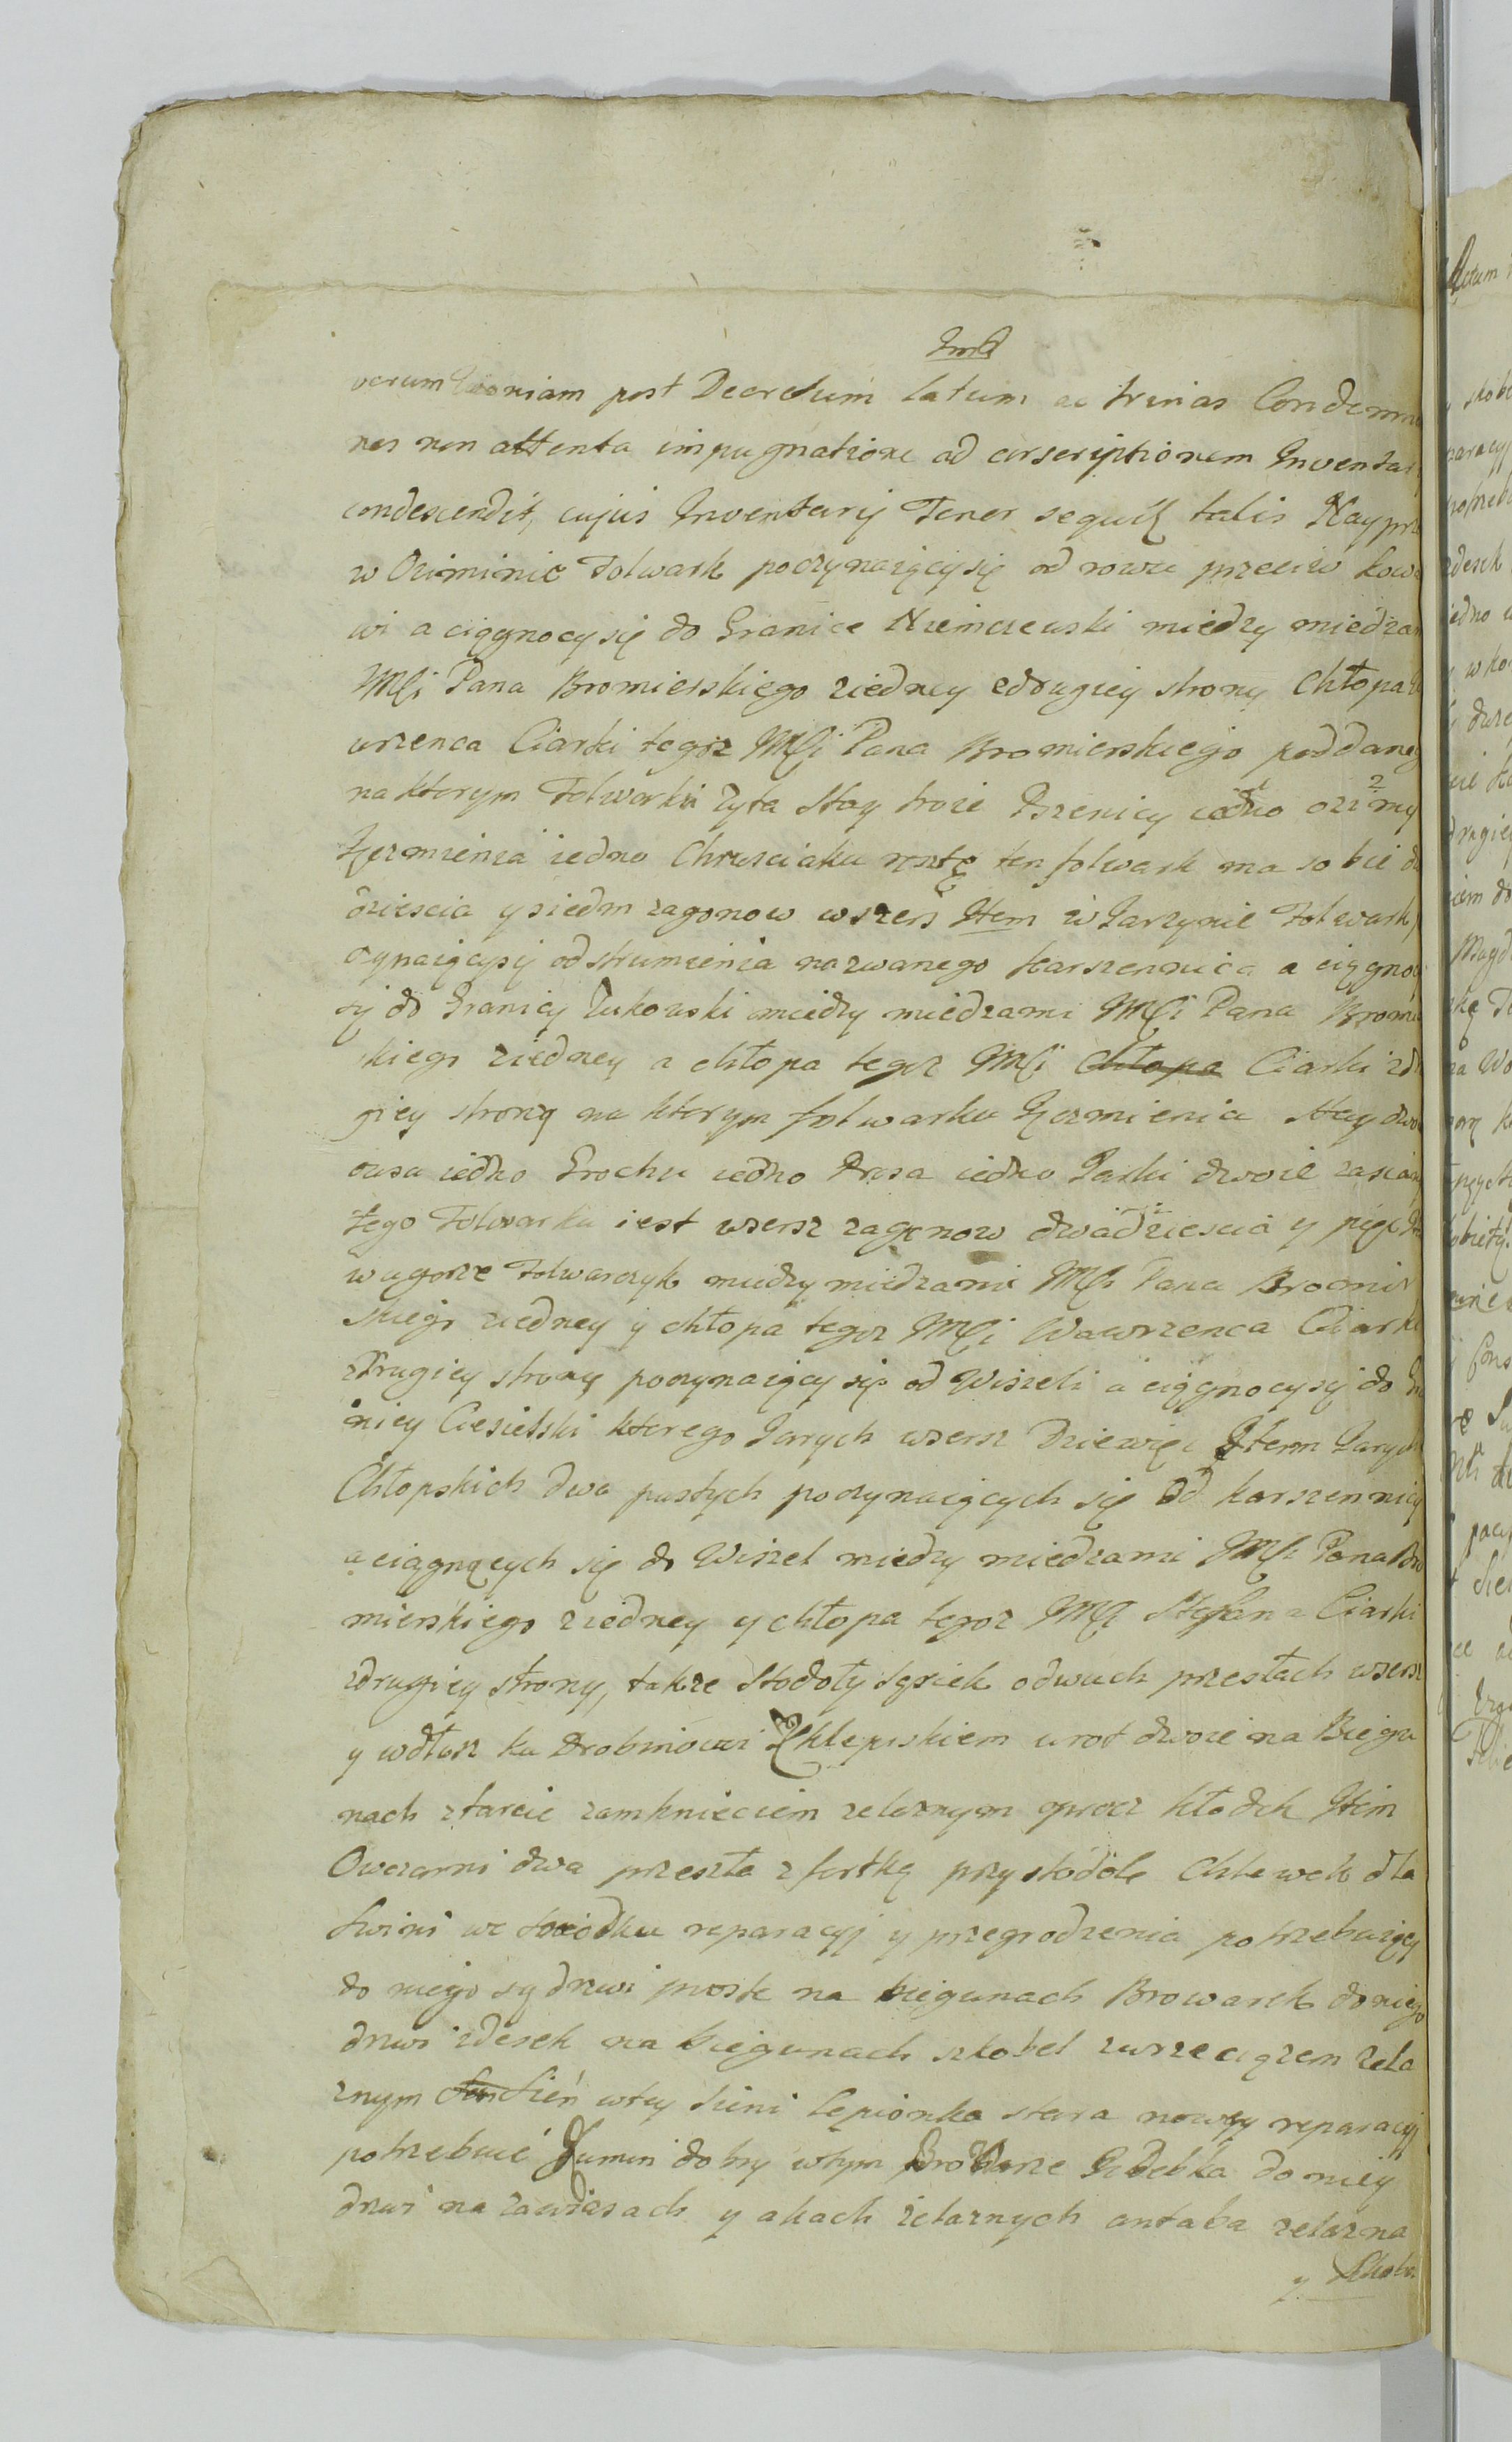 verum post Decretum latum ac trinas Condemna
nes non attenta impugnatione ad conscriptionem Inventar
condescendit, cujus Inventarij Tenor seqū talis Naypr
w Oziminie Folwark poczynaiącysię od rowu przeciw kow
wi a ciągnocysię do Granice Niemczewski miedzy miedzam
JMCi Pana Bromierskiego ziedney zdrugiey strony Chłopa
wrzenca Ciarki tegoz JMCi Pana Bromierskiego poddaneg
na ktorym Folwarku Zyta Stay troie Pszenicy iedno ozimy
Jęczmienia iedno Chrusciaku ten folwark ma sobie d
dziescia y siedm zagonow wszerz Item w Jarzynie Folwark
czynaiącysię od strumienia nazwanego Karszennica a ciągnoc
sie do Granicy Zukowski miedzy miedzami JMCi Pana Bromi
skiego ziedney a chłopa tegoz JMCi Chłopa Ciarki zdr
giey strony na ktorym folwarku Jęczmienia Stay dwo
owsa iedno Grochu iedno Prosa iedno Jarki dwoie zasian
tego Folwarku iest wszerz zagonow dwadziescia y pięc
wugorze Folwarczyk miedzy miedzami JMCi Pana Bromir
skiego ziedney y chłopa tegoz JMCi Wawrzenca Ciarki
zdrugiey strony poczynaiący się od Wiszeli a ciągnocysię do Gra
nicy Ciesielski ktorego Jarych wszerz Dziewięc Item Jarych
Chłopskich dwa pustych poczynaiących się od karszennicy
a ciągnących się do Wiszel miedzy miedzami JMCi Pana Bro
mierskiego ziedney y chłopa tegoz JMCi Stefana Ciarki
zdrugiey strony, takze Stodoły Sąsiek o dwuch przesłach wszerz
y wdłusz ku Drobinowi Zklepiskiem wrot dwoie na Biegu
nach ztarcic zamknieciem zelaznym oprocz kłodek Item
Owczarni dwa przesła z fortką przy stodole Chlewek dla
Swini we srodku reparacyj y przegrodzenia potrzebuiący
do niego są drzwi proste na biegunach Browarek do niego
drzwi zdesek na biegunach szkobel zwrzeciązem zela
znym Sien Sień wtey Sieni Lepionka stara nowey reparacyj
potrzebuie Kumin dobry wtym Browarze Izdebka do niey
drzwi na zawiasach y akach zelaznych antaba zelazna
y Skobe